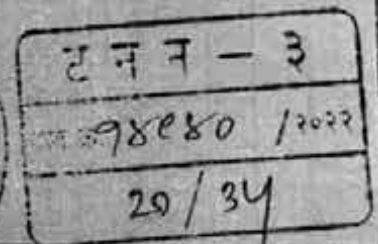 ट न न - ३
१४९४० /२०२२
२७/३५